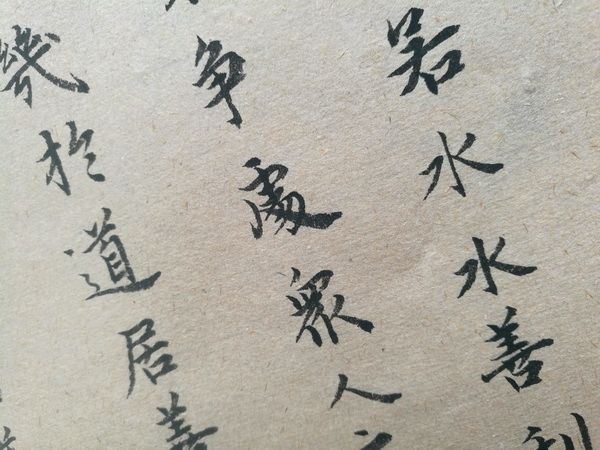 若水水善利
争處眾人之
幾於道居善